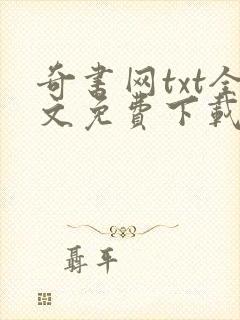 奇书网txt全
文免费下载
聶平